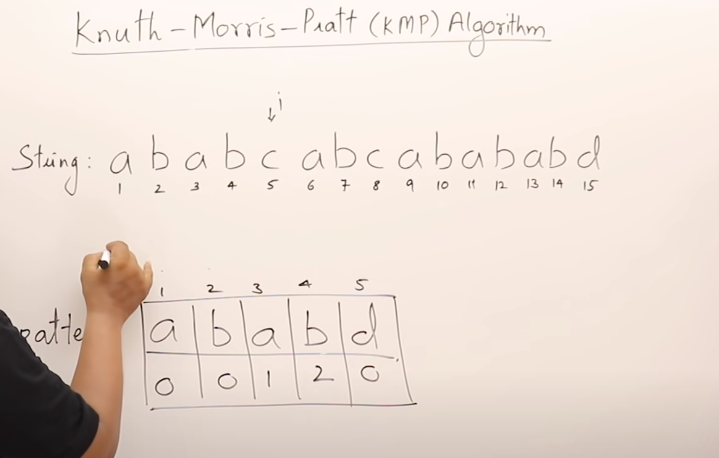 Knuth-Morris-Pratt (KMP) Algorithm
i
String: a b a b c a b c a b a b a b d
1 2 3 4 5 6 7 8 9 10 11 12 13 14 15
1 2 3 4 5
a b a b d
0 0 1 2 0